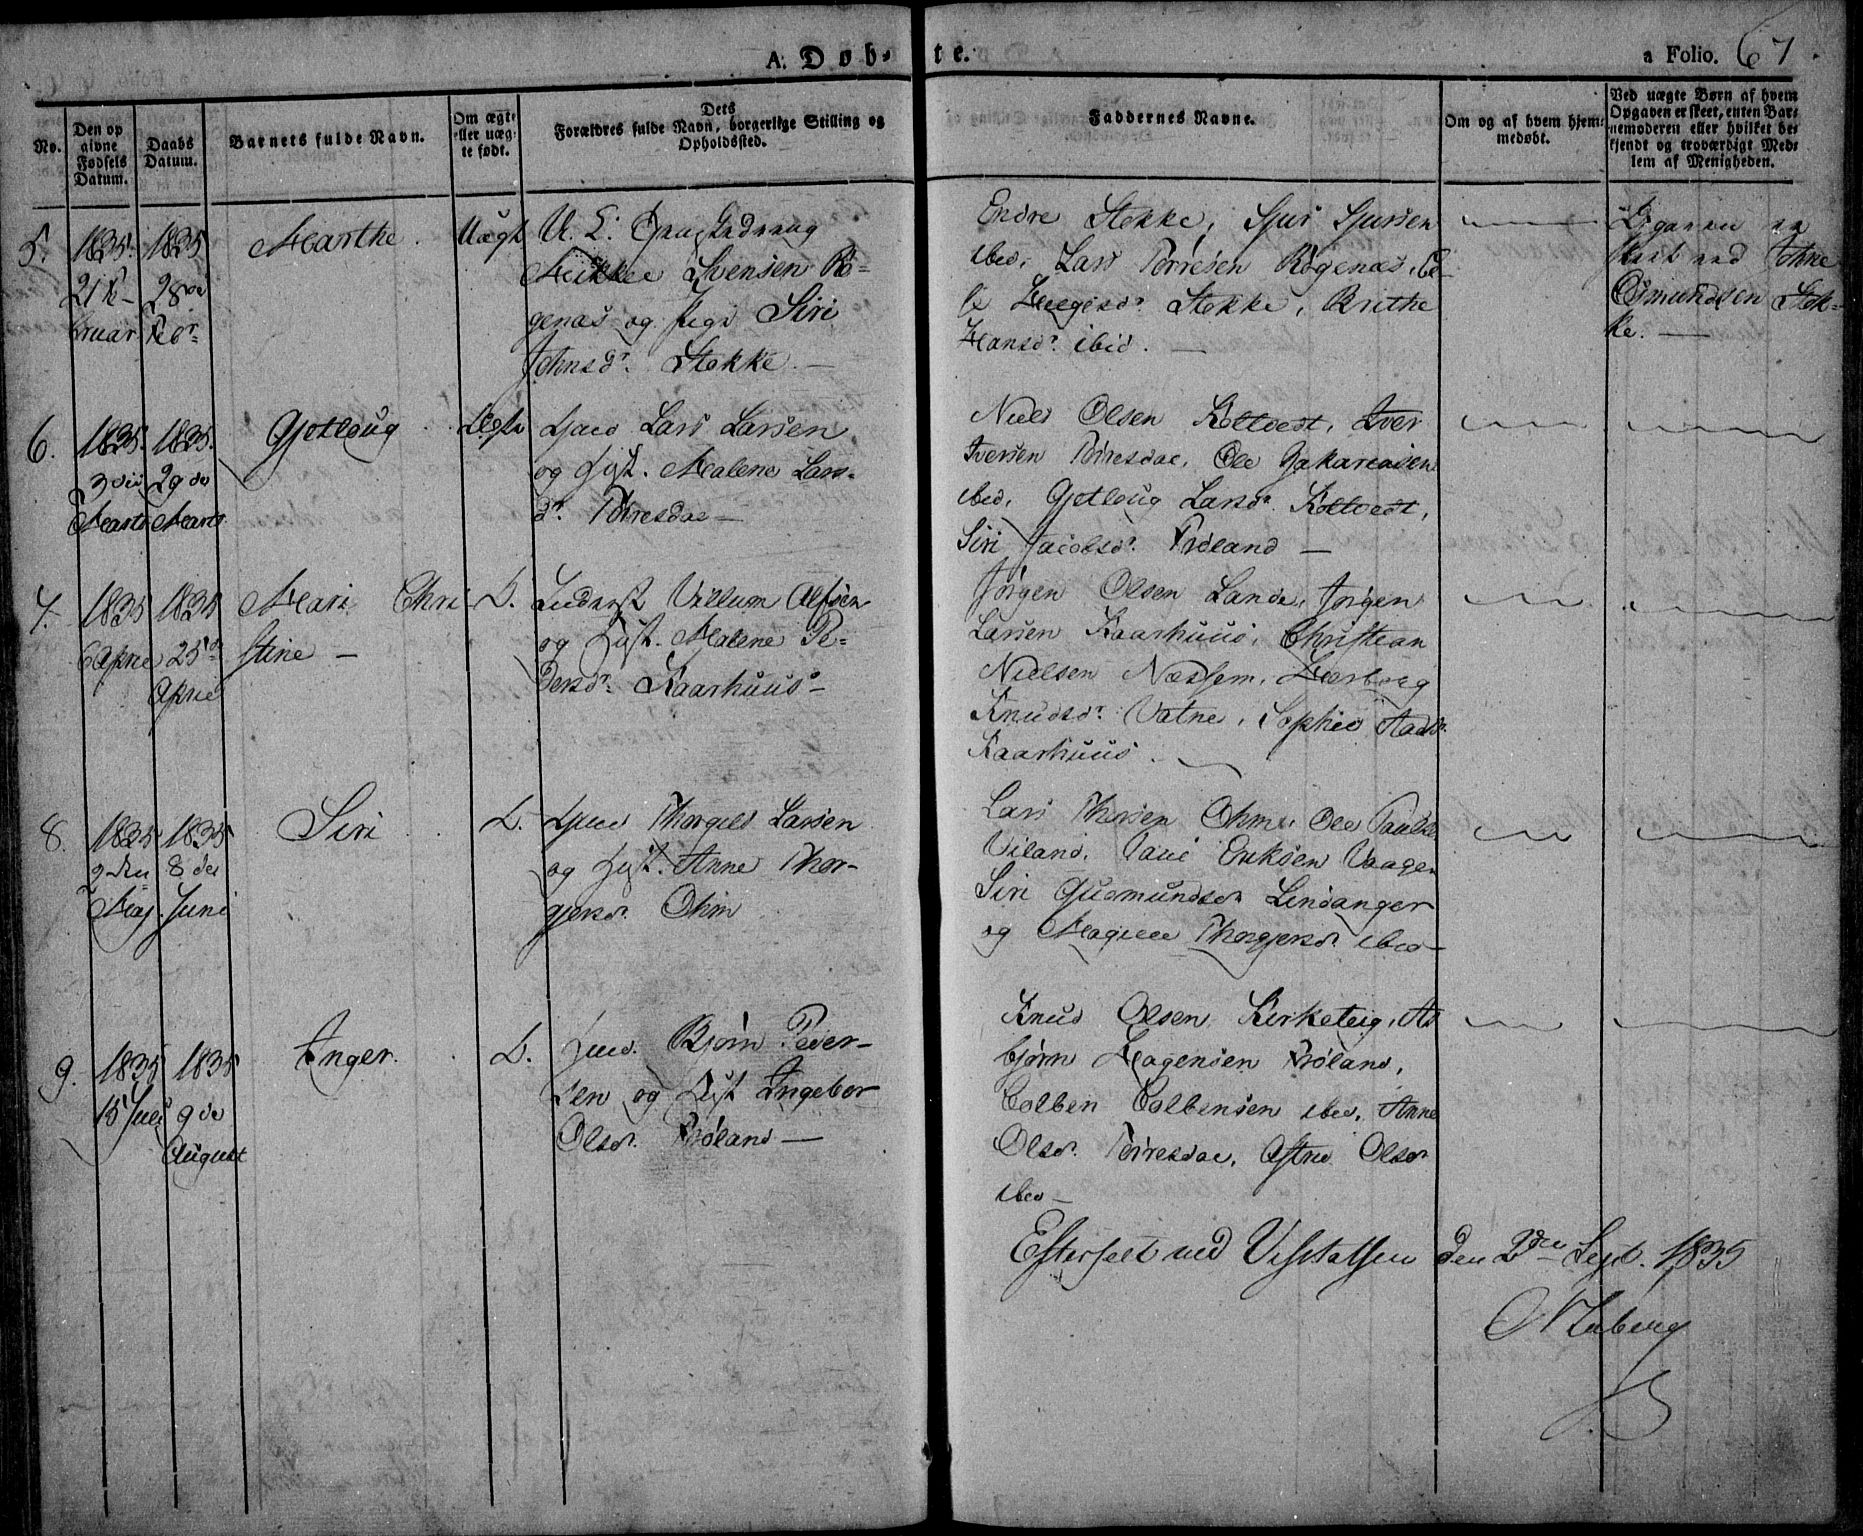 A. Døb-
te.
a Folio. 67
No.
Den op
givne
Fødsels
Datum.
Daabs
Datum.
Barnets fulde Navn.
Om ægte
eller uæg-
te født.
Dets
Forældres fulde Navn, borgerlige Stilling og
Opholdssted.
Faddernes Navne.
Om og af hvem hjem-
medøbt.
Ved uægte Børn af hvem
Opgaven er skeet, enten Bar-
nemoderen eller hvilket be-
kjendt og troværdigt Med-
lem af Menigheden.
5.
1835.
21 Fe-
bruar
1835
28de
Febr.
Marthe.
Uægte
U. C.
Mikkel Svensen Rø-
genas og Pige Siri
Johnsdr. Stokke. —
Endre Stokke, Sjur Sjursen
ibid, Lars Tørresen Røgenas,
Stokke, Brithe
Hansdr. ibid. —
Opgaven er
skeet ved Johne
Osmundsen Stok-
ke. —
6.
1835.
3die
Marts
1835.
29de
Marts
Gjetloug
Ægte
Gaard. Lars Larsen
og Hust. Malene Lars-
dr. Tørresdal —
Niels Olsen Koltvedt, Iver
Iversen Tørresdal, Ole Zakariasen
ibid, Gjetloug Larsdr. Koltvedt,
Siri Jacobsdr. Frøland —
7.
1835
6 April
1835
25de
April
Mari Chri-
stine —
D.
Inderst Villum Alfsen
og Hust. Malene Pe-
dersdr. Kaarhuus —
Jørgen Olsen Lande, Jørgen
Larsen Kaarhuus, Christian
Nielsen Næssem, Herborg
Knudsdr. Vatne, Sophie Aadsdr.
Kaarhuus.
8.
1835
9den
Maj.
1835
8de
Juni
Siri
D.
Thorgils Larsen
og Hust. Anne Thor-
gjersdr. Ohm
Lars Thorsen Ohm, Ole Paulsen
Viland, Paul Eriksen Vaagen
Siri Gudmundsdr Lindanger
og Magille Thorgjersdr. ibid —
9.
1835
15 Juli
1835
9de
August
Inger.
D.
Bjørn Peder-
sen og Hust Ingebor
Olsdr. Frøland —
Knud Olsen Kirketeig, As-
bjørn Hagensen Frøland,
Colben Colbensen ibid, Anne
Olsdr. Tørresdal, Astrid Olsdr
ibid —
Efterseet ved Visitatsen den 2den Sept. 1835